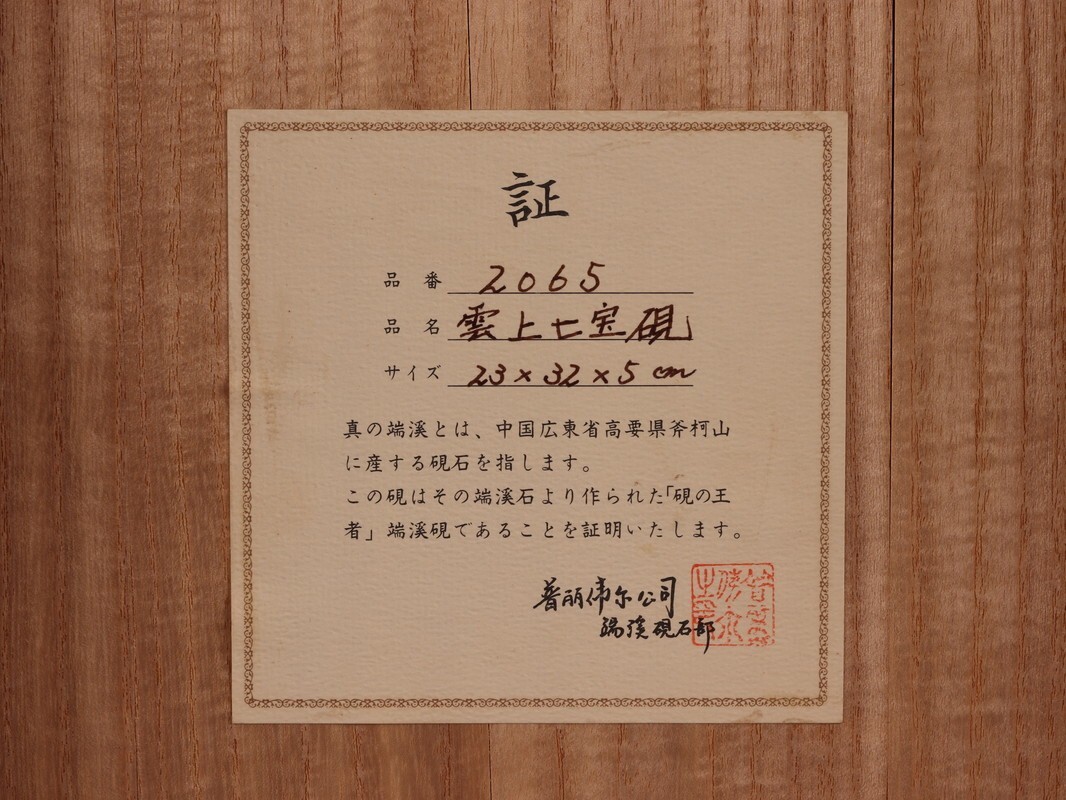 証
品番 2065
品名 雲上七宝硯
サイズ 23×32×5cm
真の端溪とは、中国広東省高要県斧柯山
に産する硯石を指します。
この硯はその端溪石より作られた「硯の王
者」端溪硯であることを証明いたします。
普丽伟尔公司
端溪硯石部